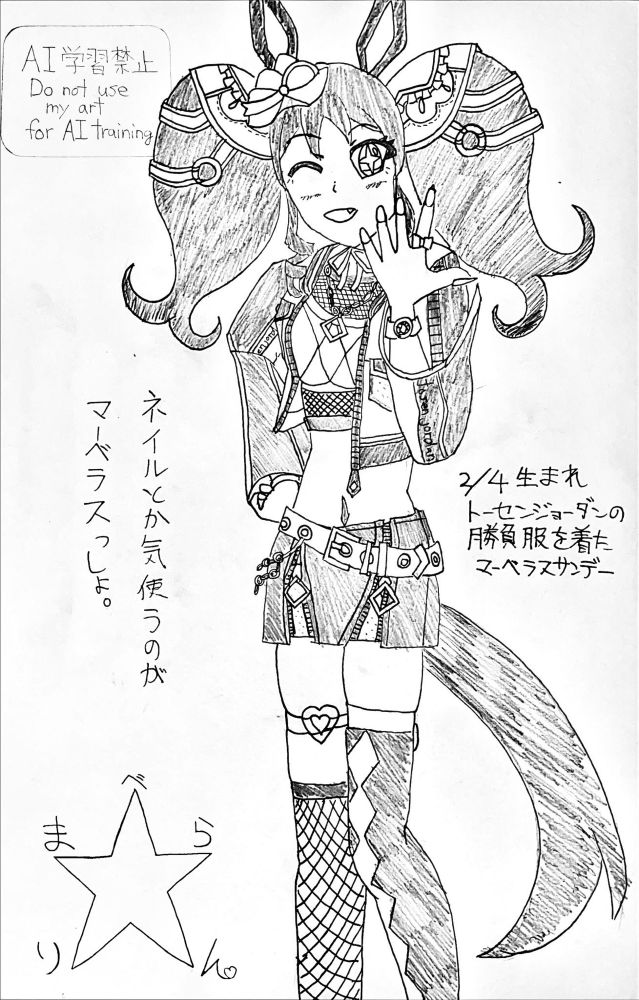 AI学習禁止
Do not use
my art
for AI training
ネイルとか気使うのが
マーベラスっしょ。
2/4 生まれ
トーセンジョーダンの
勝負服を着た
マーベラスサンデー
べ
ま
ら
り
ん♡